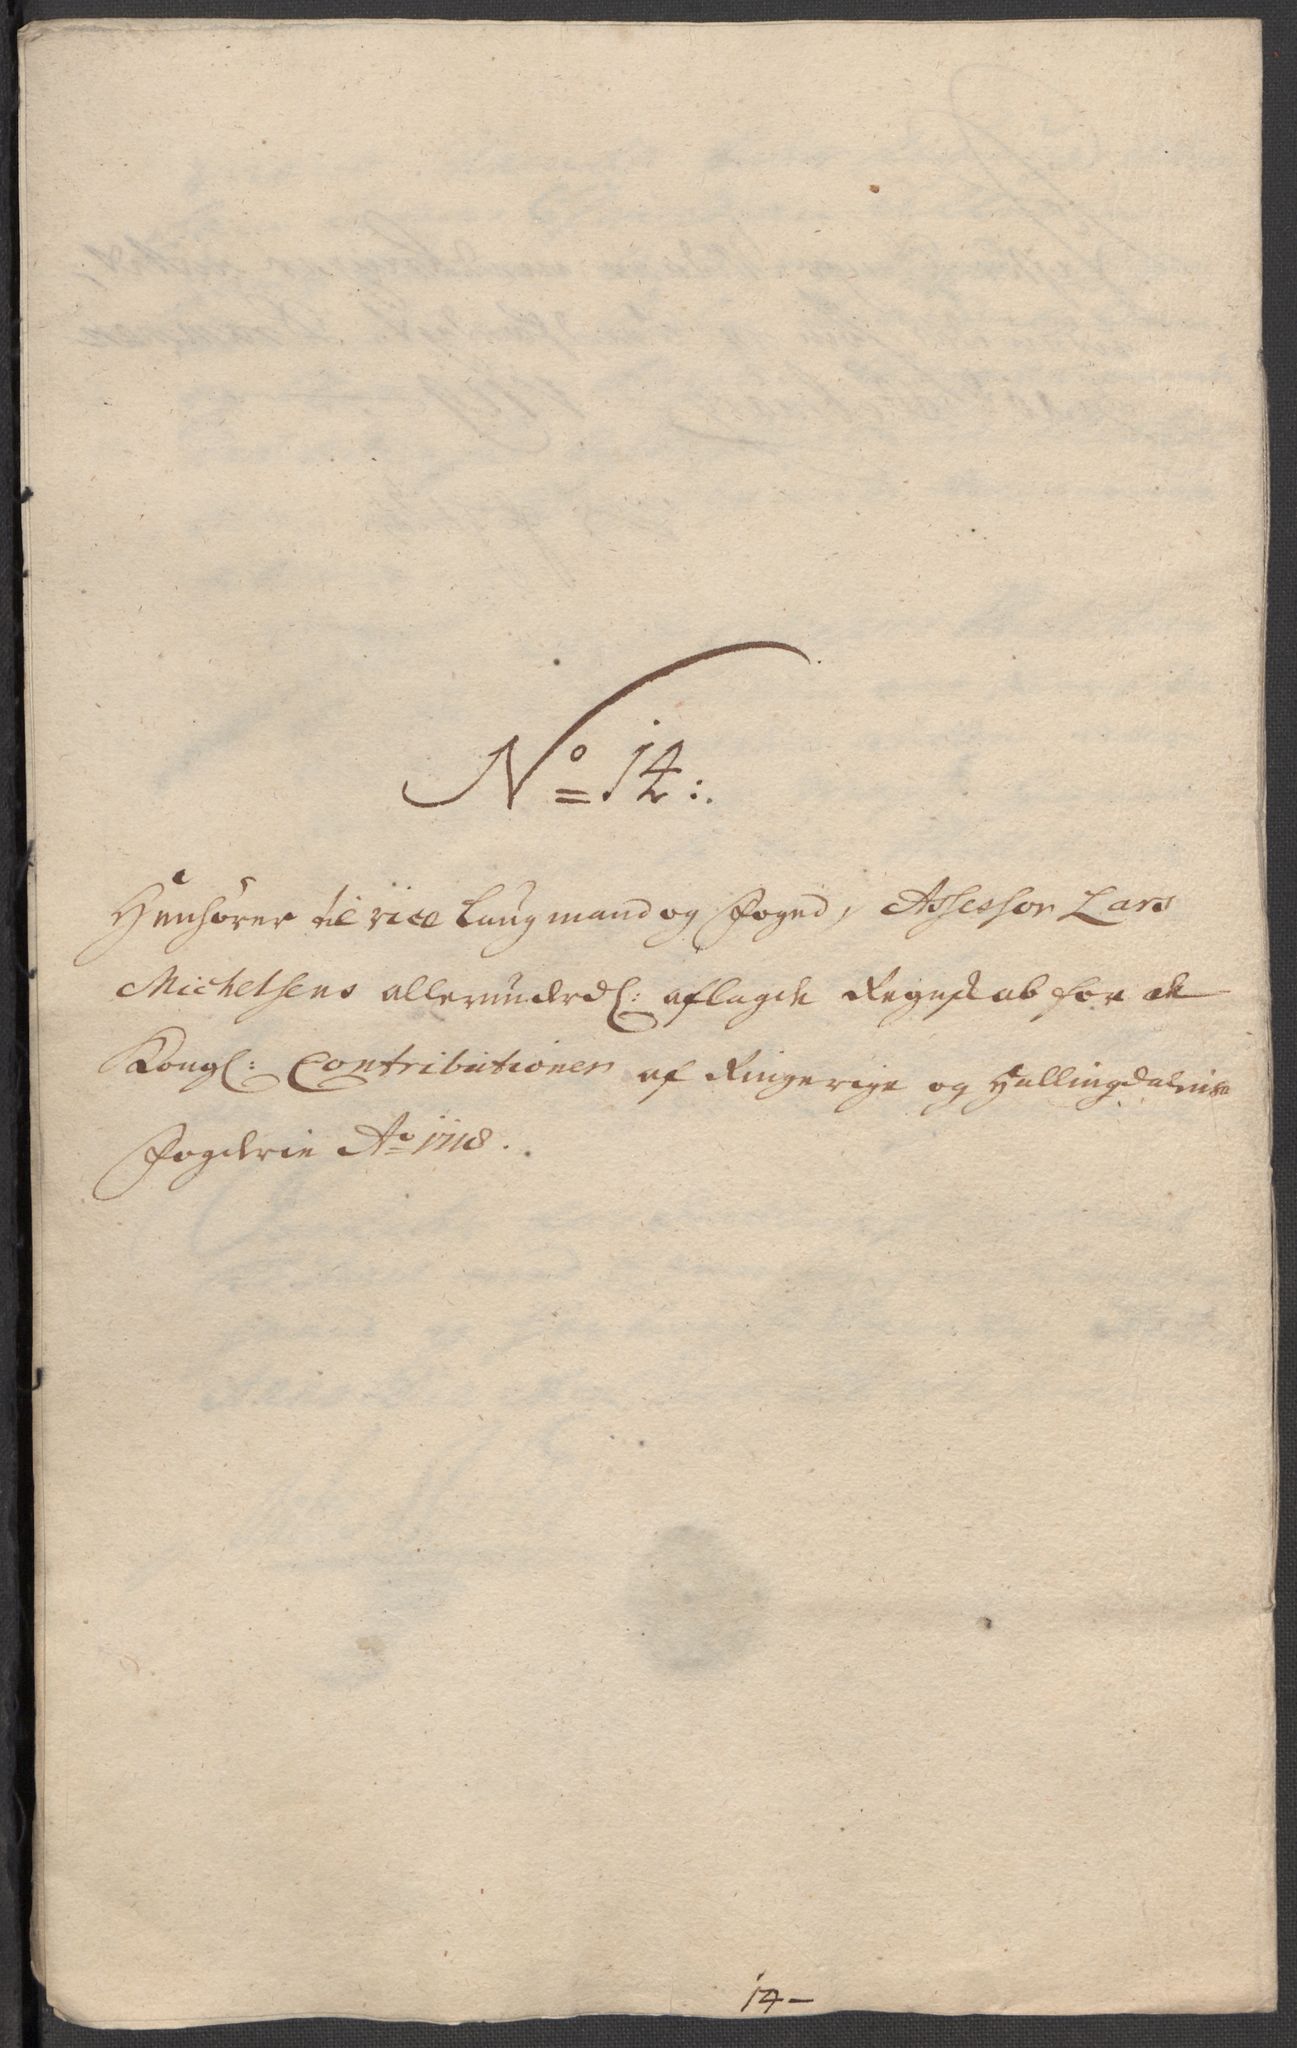 No 14:
Henhører til vice Laugmand og Foged, Assessor Lars
Michelsens allerunderdl: aflagde Regnskab for de
Kongl: Contributioner af Ringerige og Hallingdalens
Fogderie Ao 1718.
14-